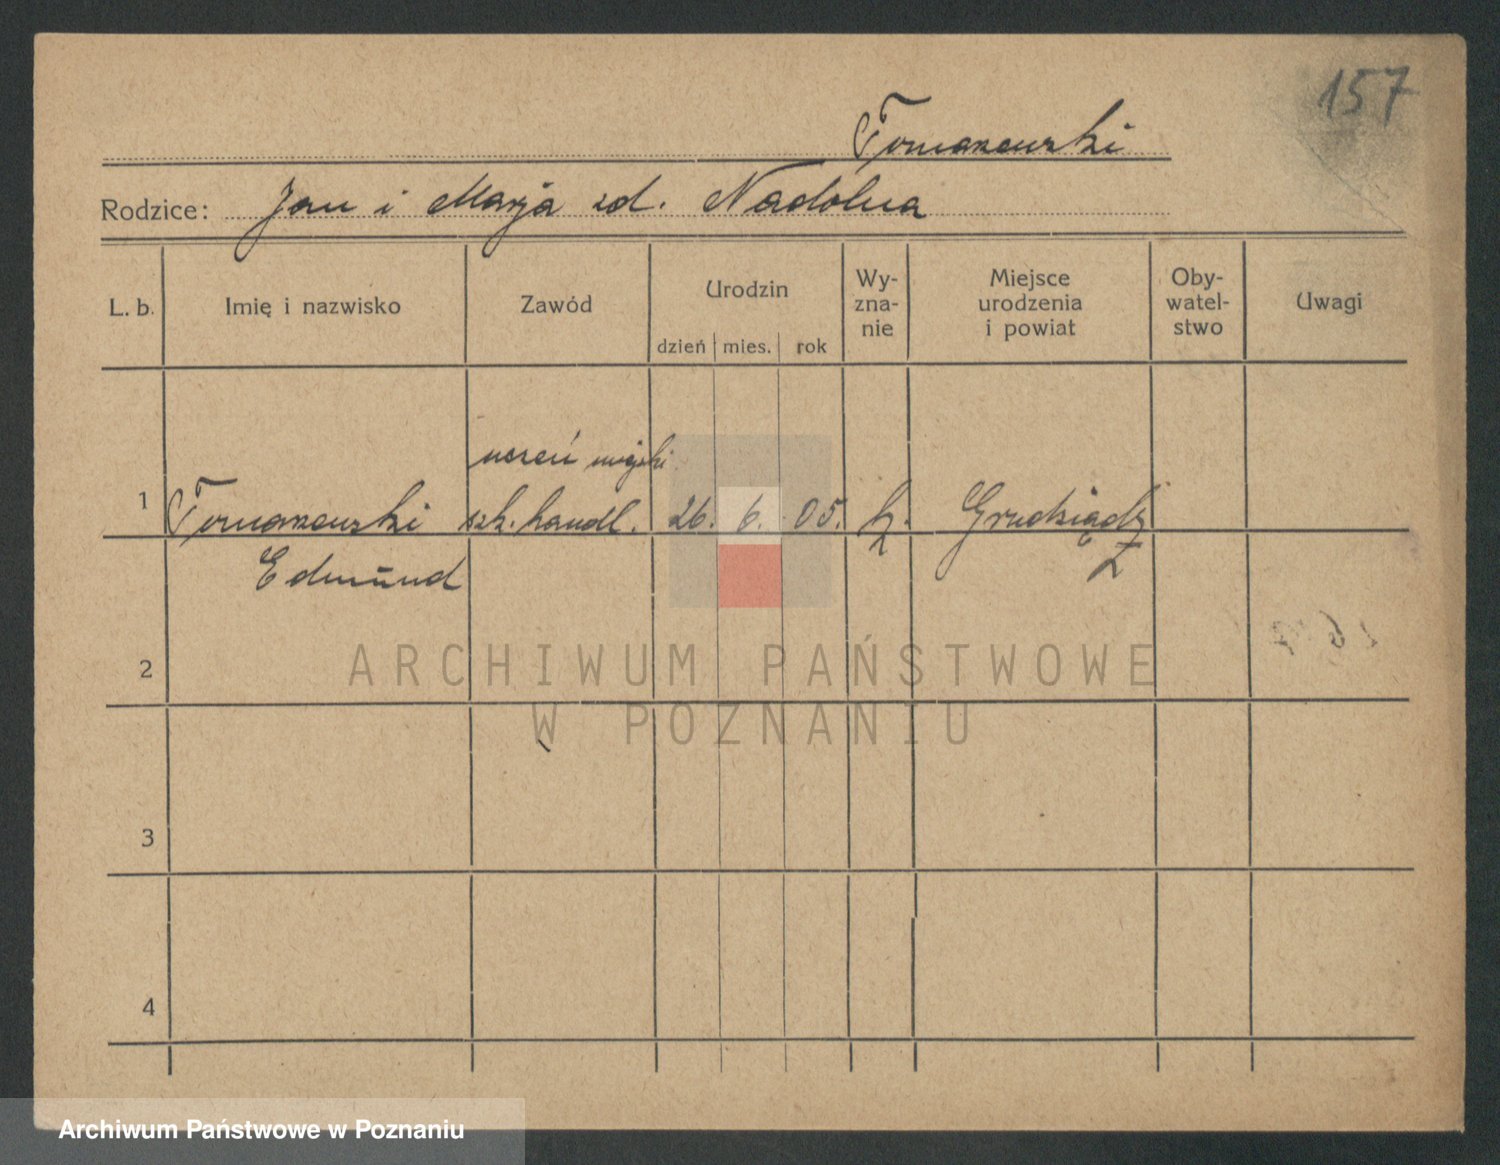 157
Tomaszewski
Rodzice: Jan i Marja zd. Nadolna
L. b. Imię i nazwisko Zawód Urodzin dzień mies. rok Wy-zna-nie Miejsce urodzenia i powiat Oby-watel-stwo Uwagi
uczeń miejski
1 Tomaszewski szk. handl. 26. 6. 05. k. Grudziądz
Edmund
2
ARCHIWUM PAŃSTWOWE
W POZNANIU
3
4
Archiwum Państwowe w Poznaniu